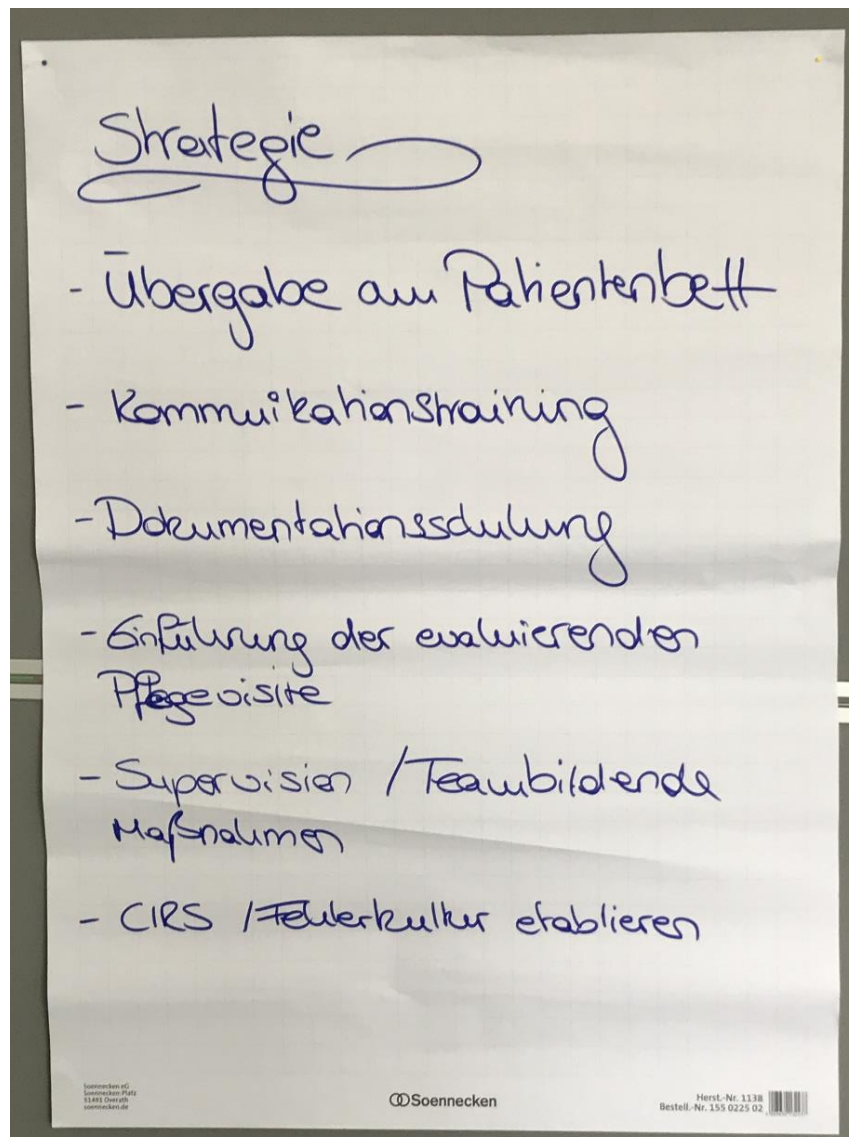 Strategie
- Übergabe am Patientenbett
- Kommuikationstraining
- Dokumentationsschulung
- Einführung der evaluierenden
Pflegevisite
- Supervision / Teambildende
Maßnahmen
- CIRS / Fehlerkultur etablieren
Soennecken eG
Soennecken-Platz
51491 Overath
soennecken.de
Soennecken
Herst.-Nr. 1138
Bestell.-Nr. 155 0225 02